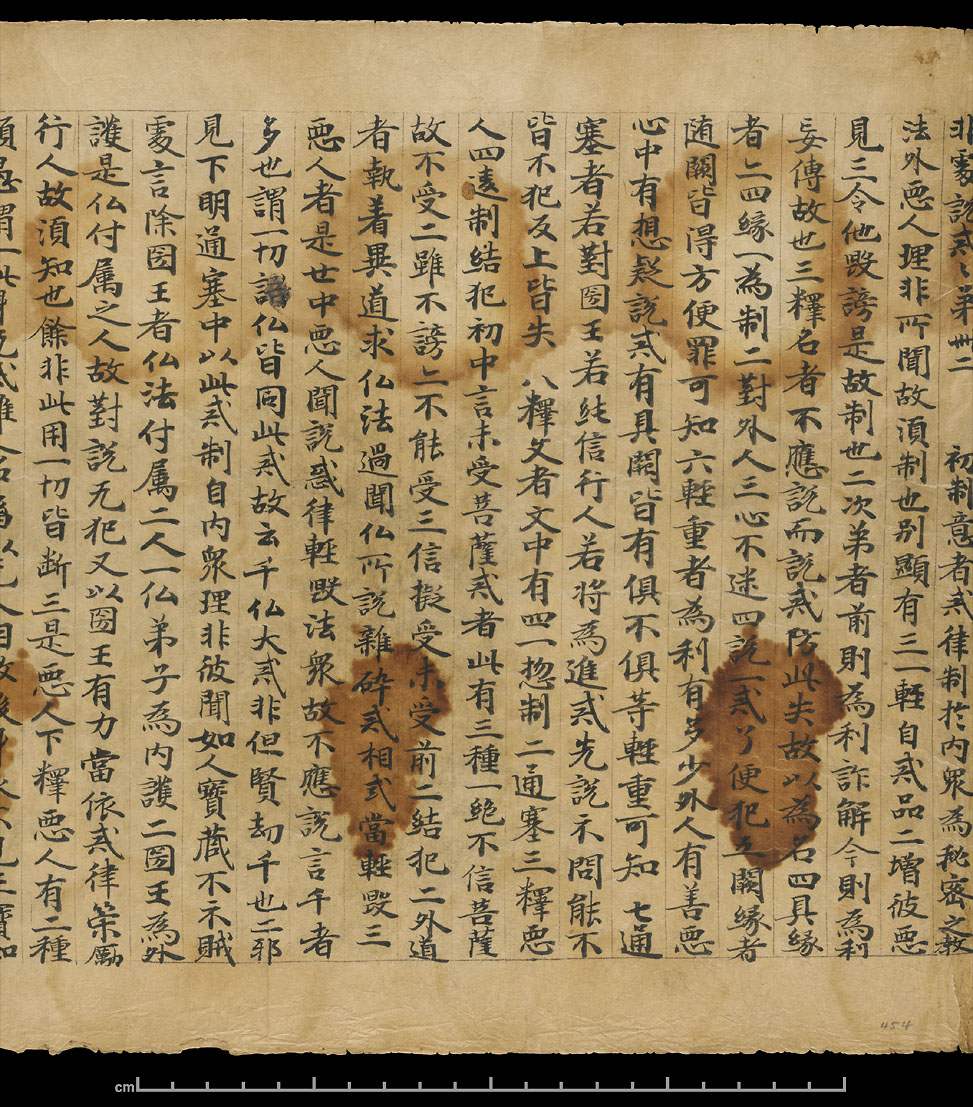 非處說戒戒第卌二　初制意者戒律制於內衆為秘密之教
法外悪人理非所聞故湏制也别顯有三一軽自戒品二增彼悪
見三令他毀謗是故制也二次弟者前則為利詐解今則為利
妄傳故也三釋名者不應說而說戒防此失故以為名四具緣
者亠四緣一為制二對外人三心不迷四說戒了便犯五闕緣者
随闕皆淂方便罪可知六軽重者為利有多少外人有善悪
心中有想疑說戒有具闕皆有俱不俱等軽重可知　七通
塞者若對國王若純信行人若將為進戒先說示問能不
皆不犯反上皆失　八釋文者文中有四一惣制二通塞三釋悪
人四違制結犯初中言未受菩薩戒者此有三種一絶不信菩薩
故不受二雖不謗亠不能受三信擬受未受前二結犯二外道
者執着異道求仏法過聞仏所說雜碎戒相或當軽毀三
悪人者是世中悪人聞說戒律軽毀法衆故不應說言千者
多也謂一切諸仏皆同此戒故云千仏大戒非但賢劫千也二邪
見下明通塞中以此戒制自内衆理非彼聞如人寶蔵不示賊
處言除國王者仏法付属二人一仏弟子為内護二國王為外
護是仏付属之人故對說无犯又以國王有力當依戒律策勵
行人故湏知也餘非此用一切皆断三是悪人下釋悪人有二種